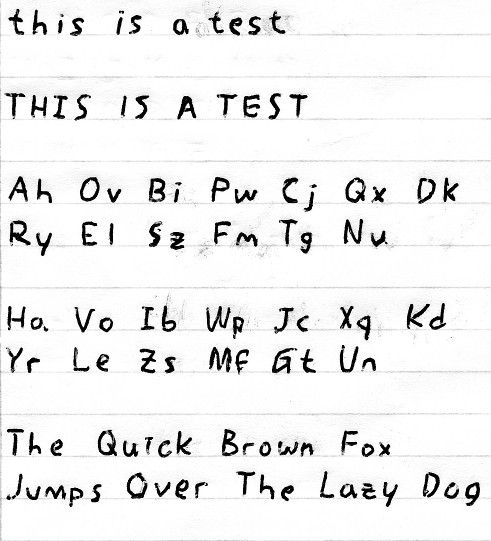 this is a test
THIS IS A TEST
Ah Ov Bi Pw Cj Qx Dk
Ry El Sz Fm Tg Nu
Ha Vo Ib Wp Jc Xq Kd
Yr Le Zs Mf Gt Un
The Quick Brown Fox
Jumps Over The Lazy Dog